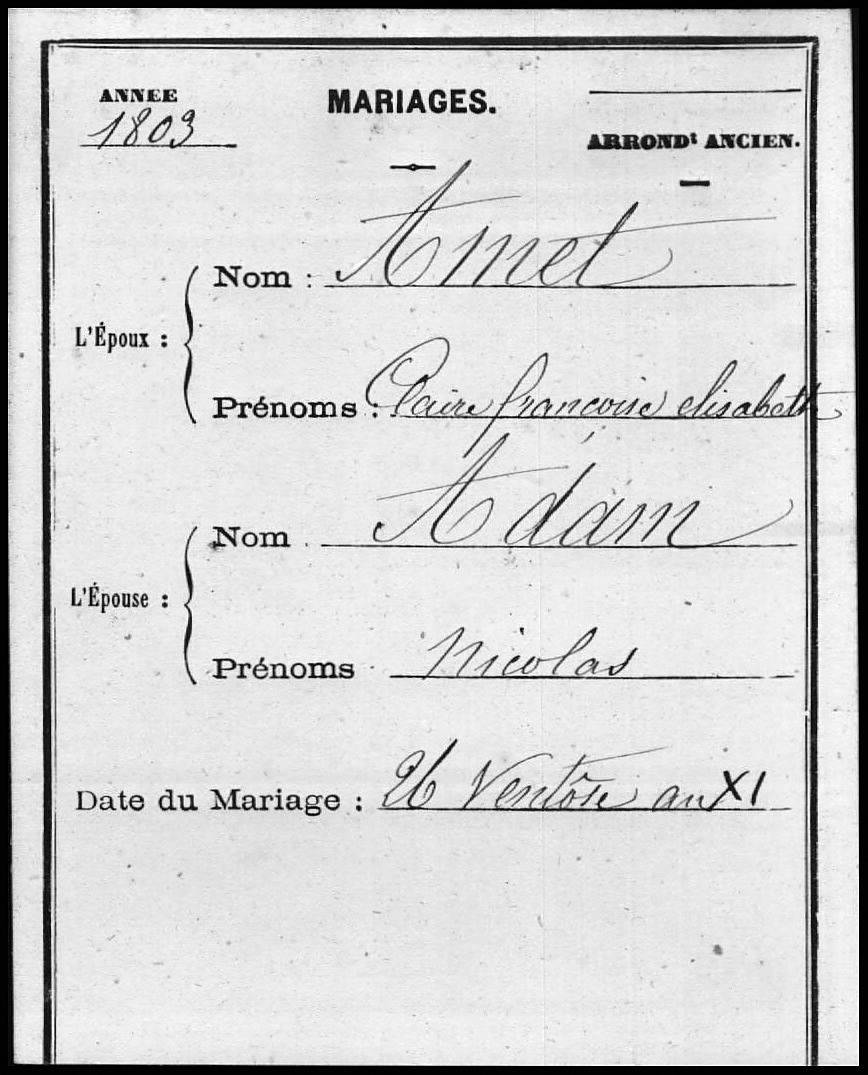 ANNEE
1803
MARIAGES.
ARRONDt ANCIEN.
L'Époux :
Nom : Amet
Prénoms : Claire françoise elisabeth
L'Épouse :
Nom Adam
Prénoms Nicolas
Date du Mariage : 26 Ventôse an XI